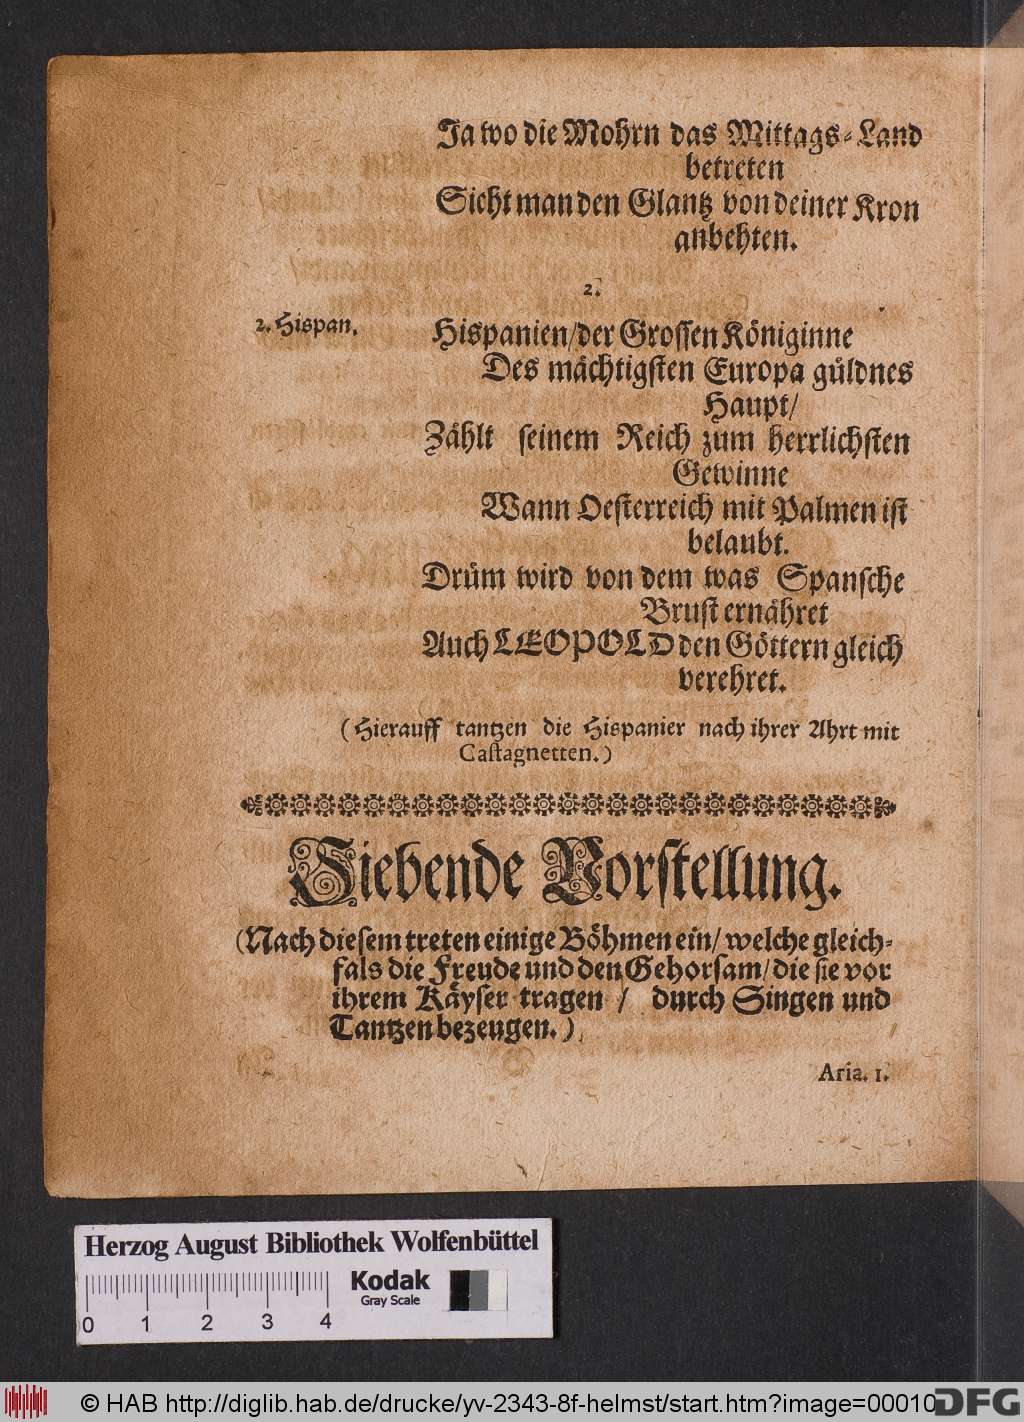 Ja wo die Mohrn das Mittags-Land
betreten
Sieht man den Glantz von deiner Kron
anbehten.
2.
2. Hispan.
Hispanien/der Grossen Königinne
Des mächtigsten Europa güldnes
Haupt/
Zählt seinem Reich zum herrlichsten
Gewinne
Wann Oesterreich mit Palmen ist
belaubt.
Drüm wird von dem was Spansche
Brust ernähret
Auch LEOPOLD den Göttern gleich
verehret.
(Hierauff tantzen die Hispanier nach ihrer Ahrt mit
Castagnetten.)
Siebende Vorstellung.
(Nach diesem treten einige Böhmen ein/ welche gleich-
fals die Freude und den Gehorsam/ die sie vor
ihrem Käyser tragen / durch Singen und
Tantzen bezeugen.)
Aria. 1.
Herzog August Bibliothek Wolfenbüttel
Kodak
Gray Scale
0 1 2 3 4
© HAB http://diglib.hab.de/drucke/yv-2343-8f-helmst/start.htm?image=00010
DFG